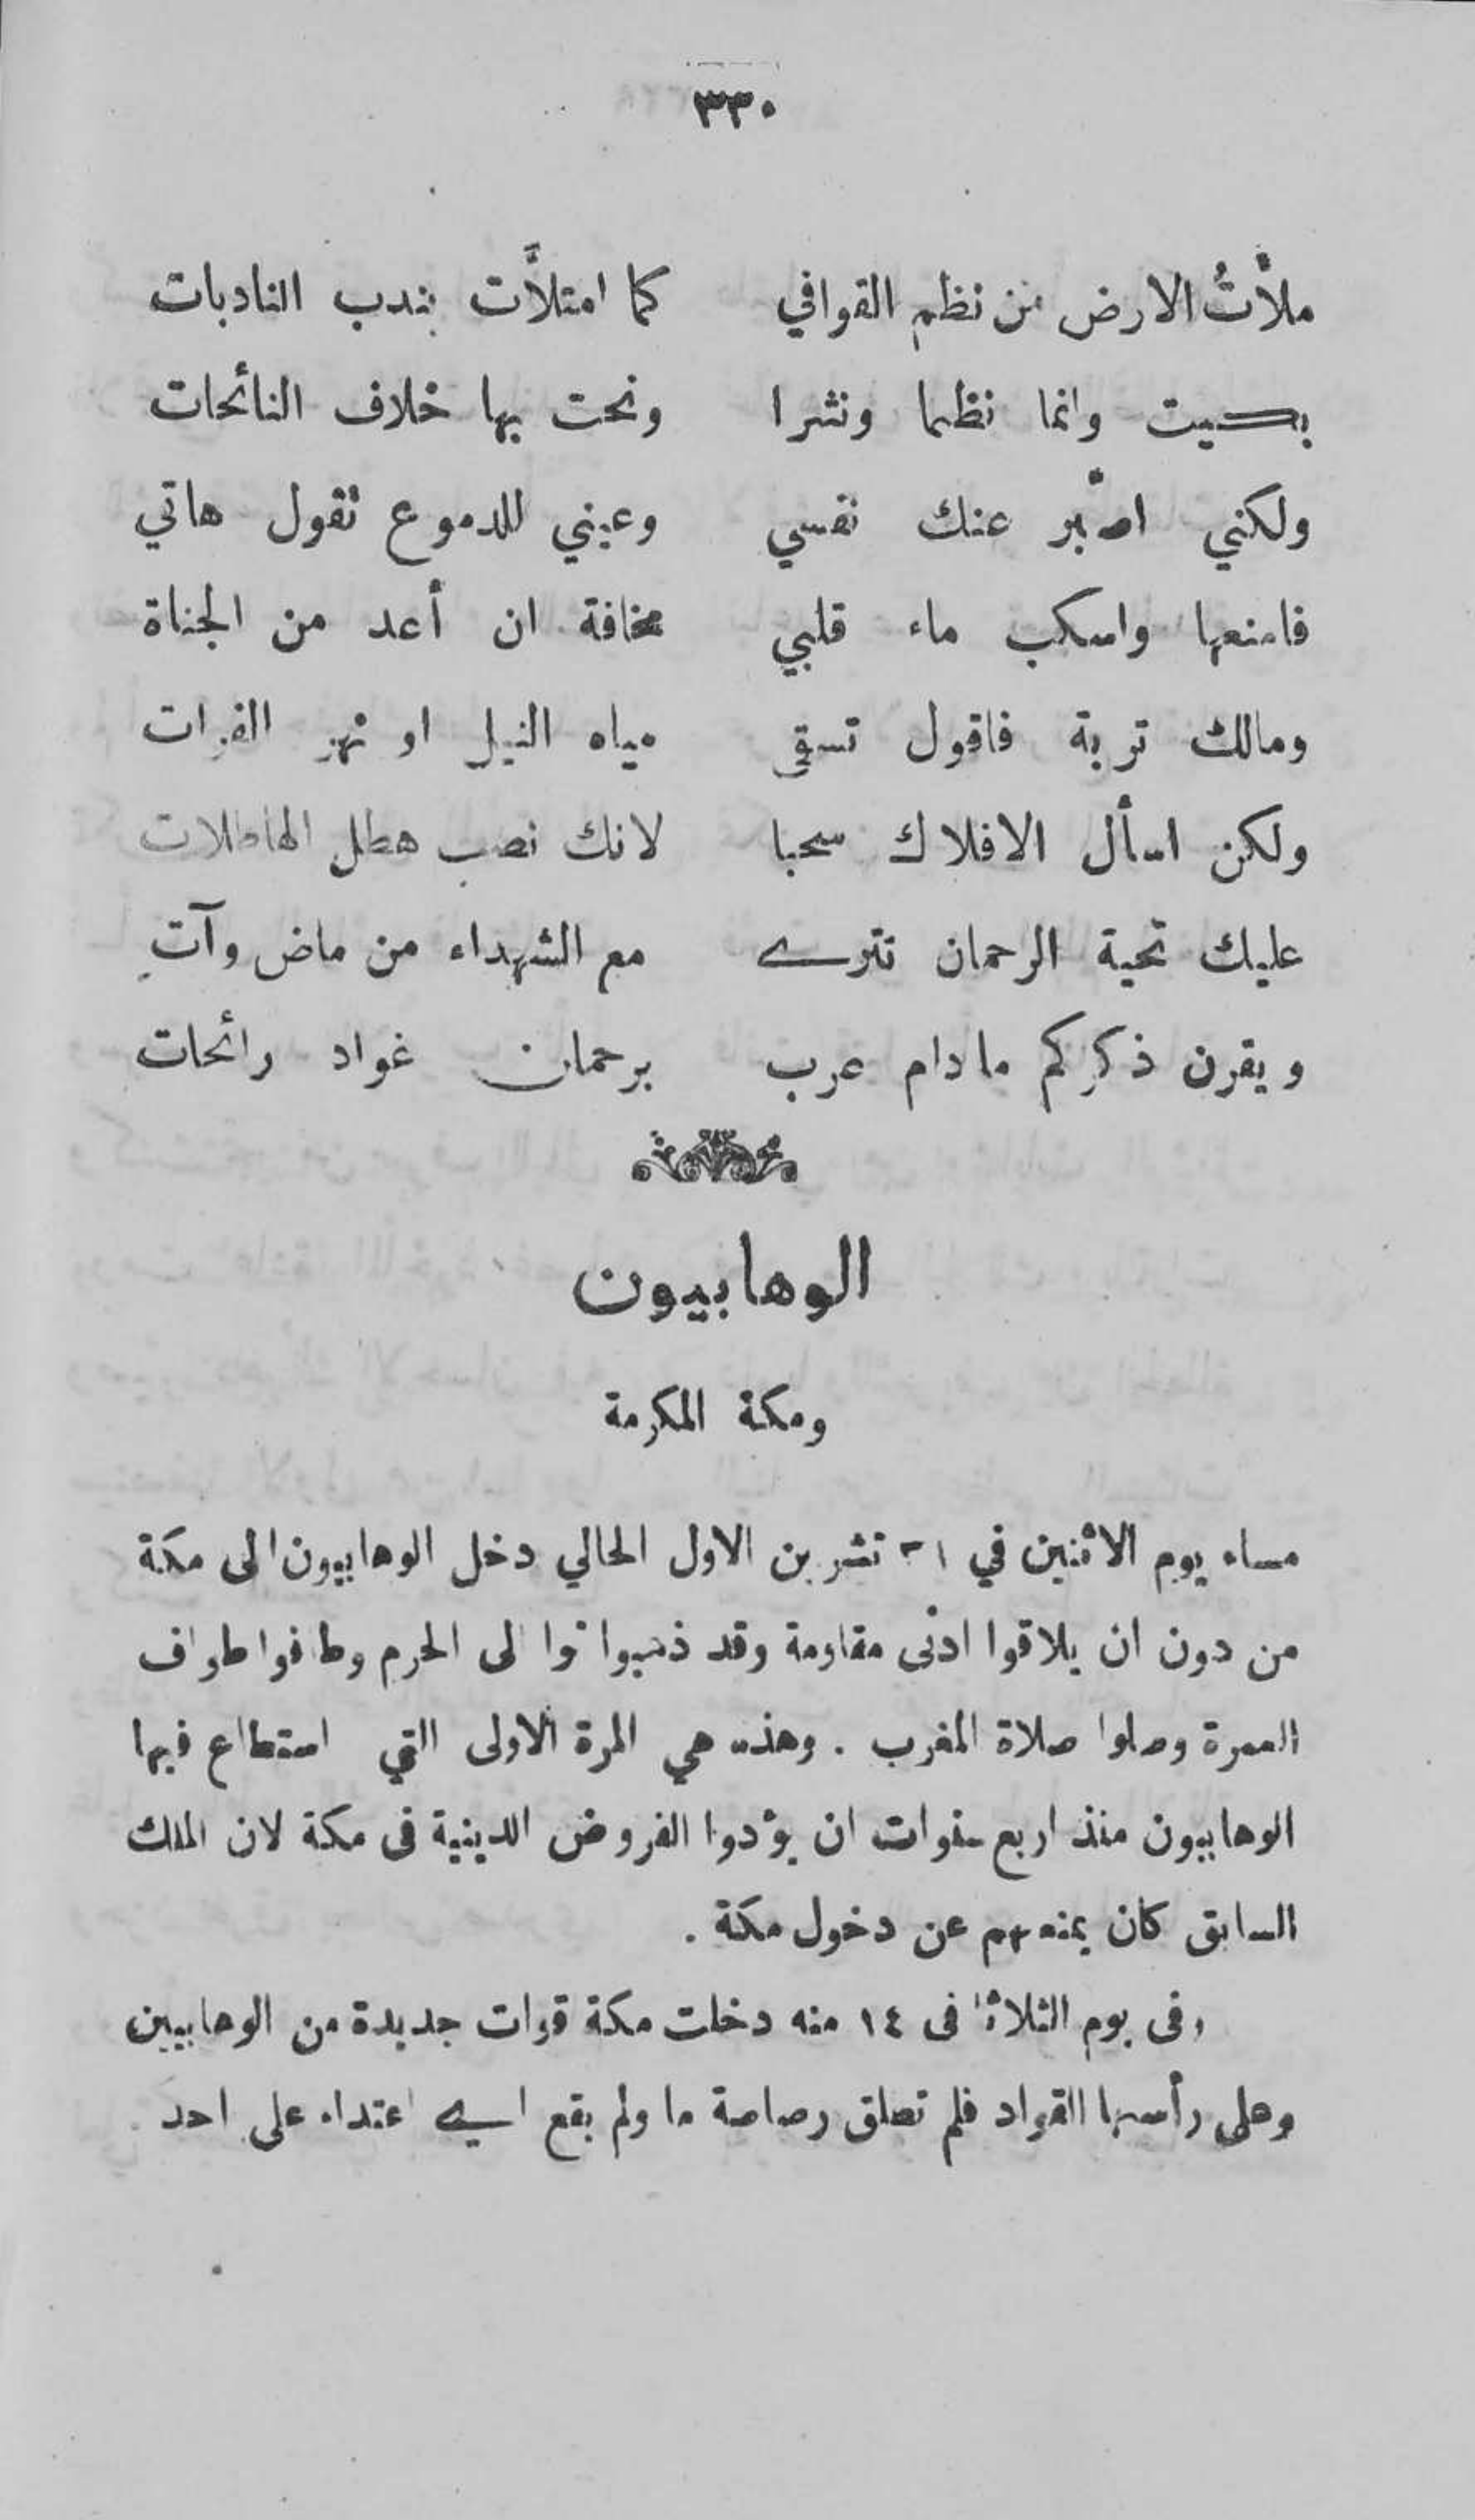 ٣٣٠
ملأتُ الارض من نظم القوافي كما امتلأَت بندب النادبات
بكيت وانما نظما ونثرا ونحت بها خلاف النائحات
ولكني اصّبر عنك نفسي وعيني للدموع تقول هاتي
فامنعها واسكب ماء قلبي مخافة ان أعد من الجناة
ومالك تربة فاقول تسقى مياه النيل او نهر الفرات
ولكن اسأل الافلاك سحبا لانك نصب هطل الهاطلات
عليك تحية الرحمان تترى مع الشهداء من ماض وآتِ
ويقرن ذكركم مادام عرب برحمان غواد رائحات
الوهابيون
ومكة المكرمة
مساء يوم الاثنين في تشرين الاول الحالي دخل الوهابيون الى مكة
من دون ان يلاقوا ادنى مقاومة وقد ذهبوا توا الى الحرم وطافوا طواف
العمرة وصلوا صلاة المغرب . وهذه هي المرة الاولى التي استطاع فيها
الوهابيون منذ اربع سنوات ان يؤدوا الفروض الدينية فى مكة لان الملك
السابق كان يمنعهم عن دخول مكة .
وفى يوم الثلاثا فى ١٤ منه دخلت مكة قوات جديدة من الوهابيين
وعلى رأسها القواد فلم تطلق رصاصة ما ولم يقع اي اعتداء على احد